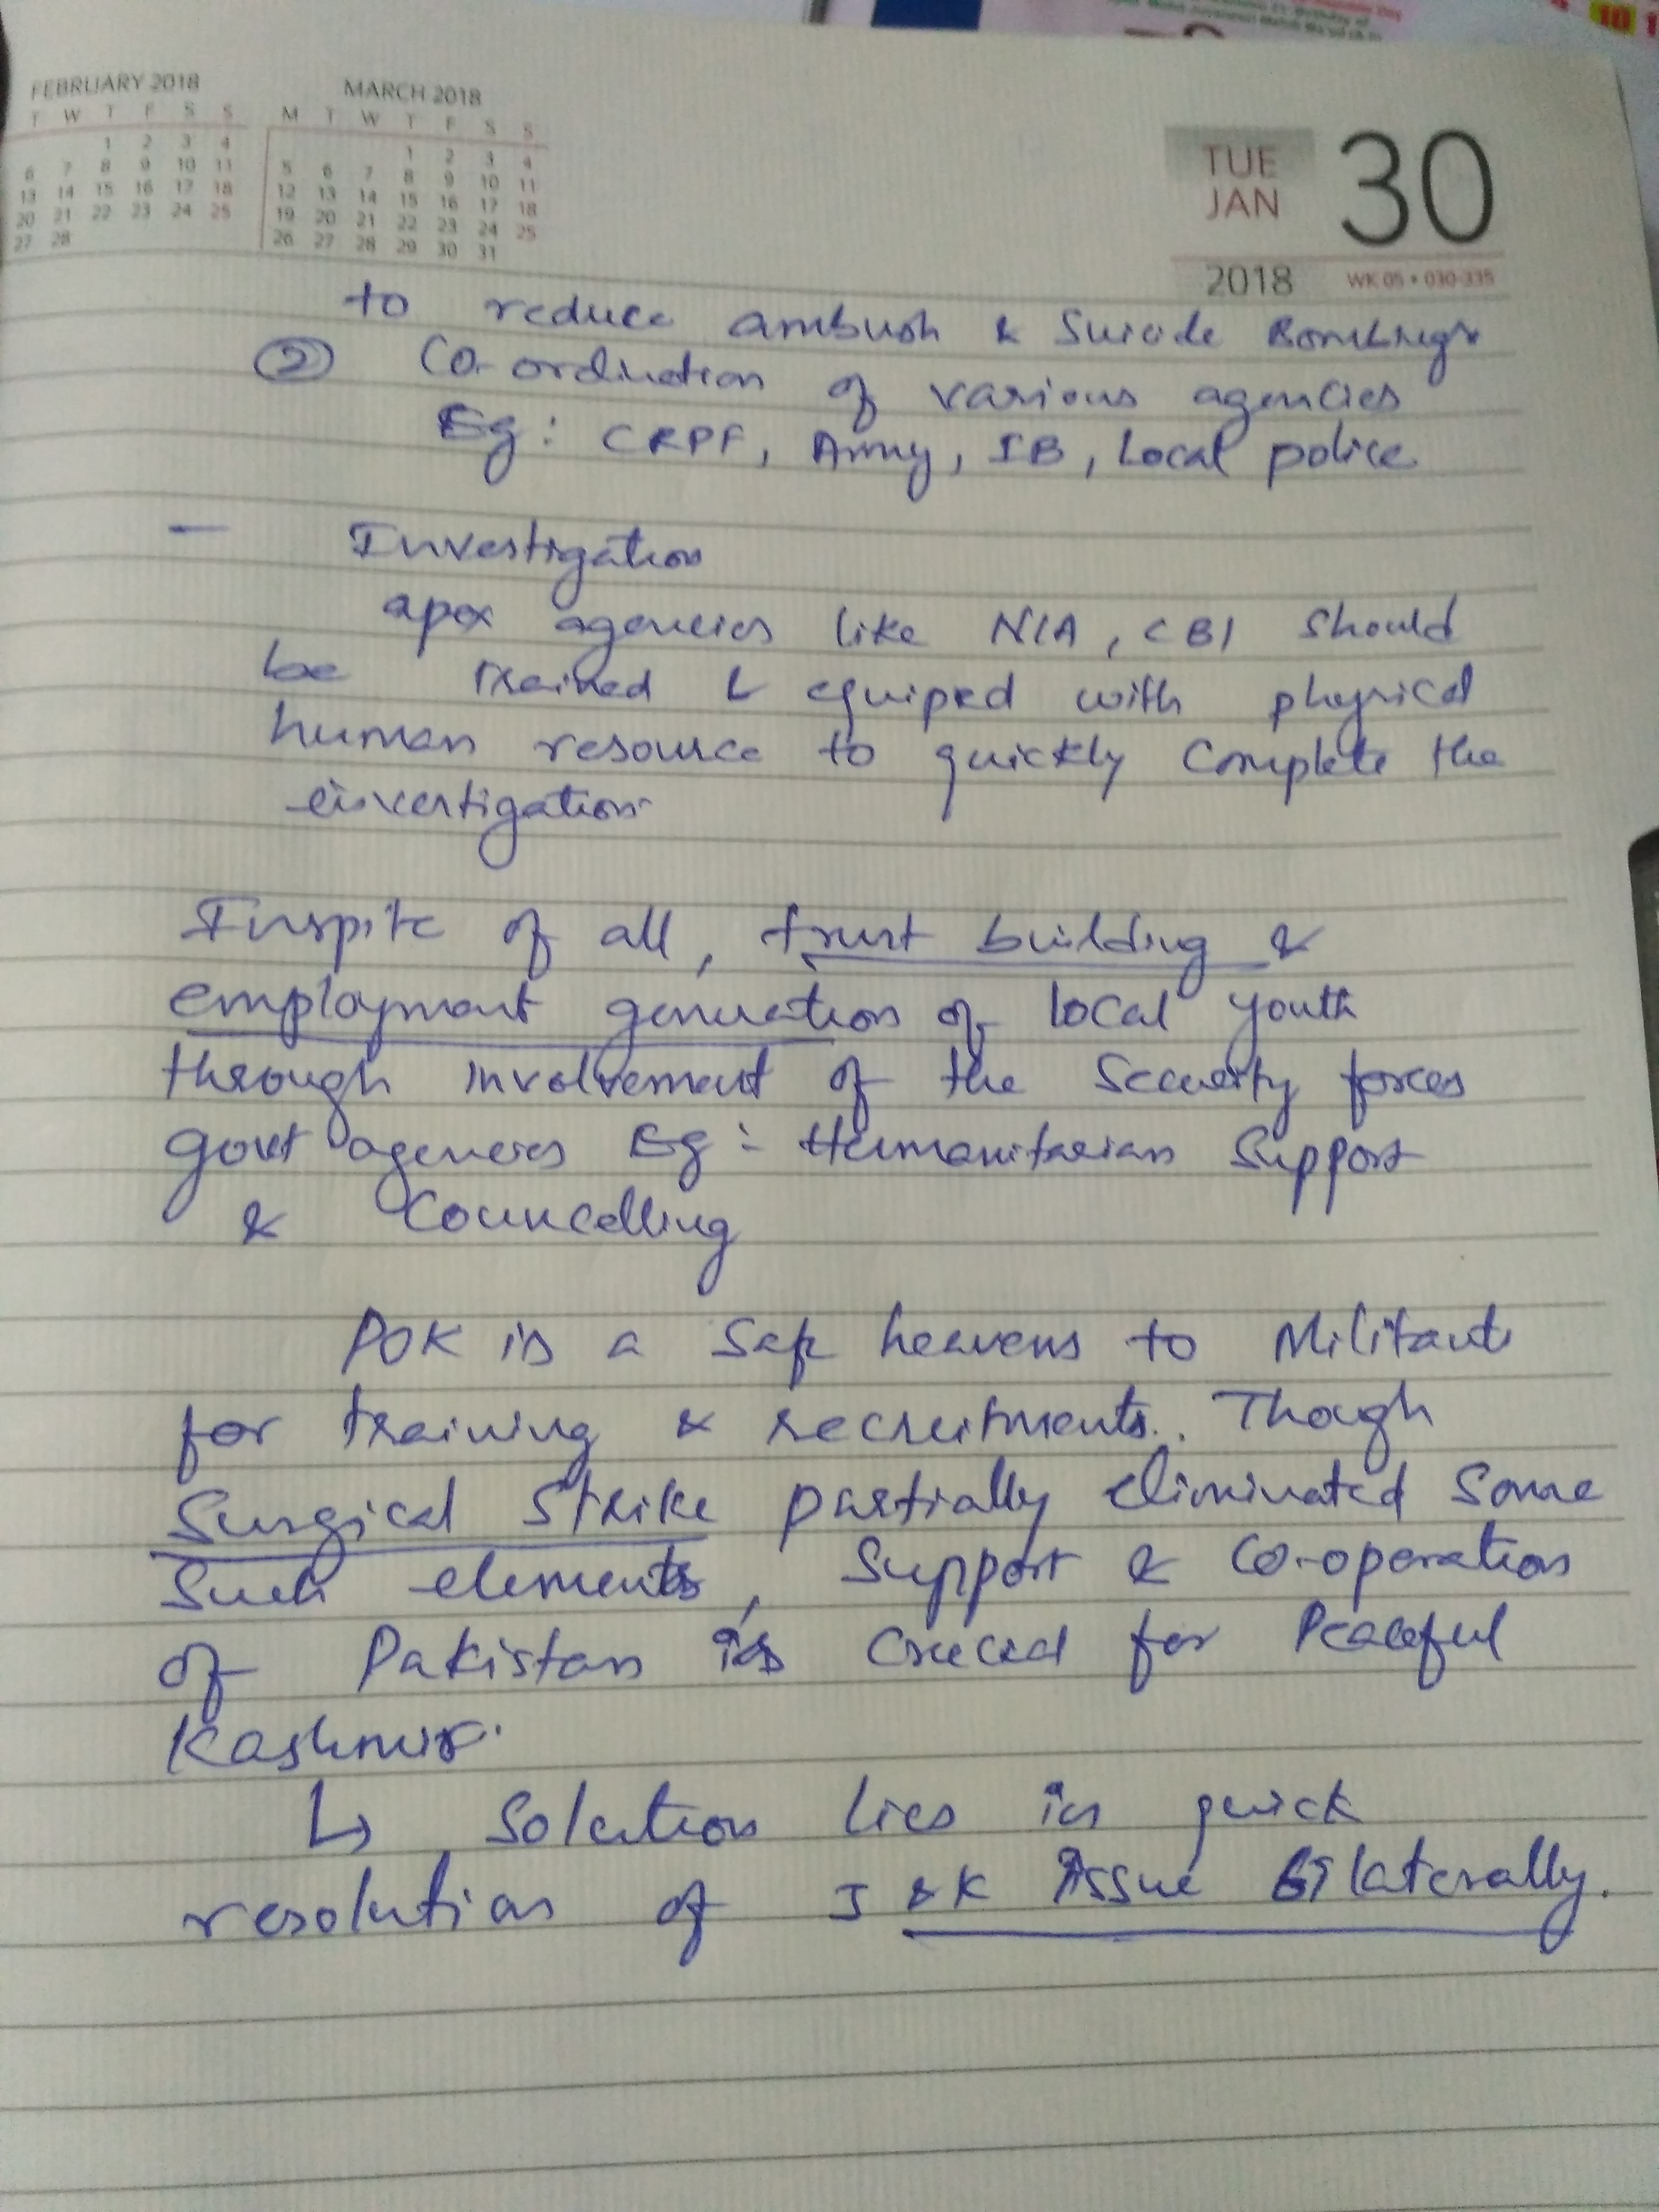 FEBRUARY 2018
T W T F S S
1 2 3 4
6 7 8 9 10 11
13 14 15 16 17 18
20 21 22 23 24 25
27 28
MARCH 2018
M T W T F S S
1 2 3 4
5 6 7 8 9 10 11
12 13 14 15 16 17 18
19 20 21 22 23 24 25
26 27 28 29 30 31
TUE
JAN
30
2018 WK 05 • 030-335
to reduce ambush & Suicide Bombings
② Co-ordination of various agencies
Eg: CRPF, Army, IB, Local police
— Investigation
apex agencies like NIA, CBI should
be trained & equiped with physical
human resource to quickly Complete the
investigation
Inspite of all, trust building &
employment generation of local youth
through involvement of the Security forces
govt agencies Eg:- Humanitarian Support
& Councelling
POK is a Safe heavens to Militant
for training & recruitments.. Though
Surgical Strike partially eliminated Some
Such elements, Support & Co-operation
of Pakistan is Crucial for Peaceful
Kashmir.
↳ Solution lies in quick
resolution of J &K Issue Bilaterally.
10